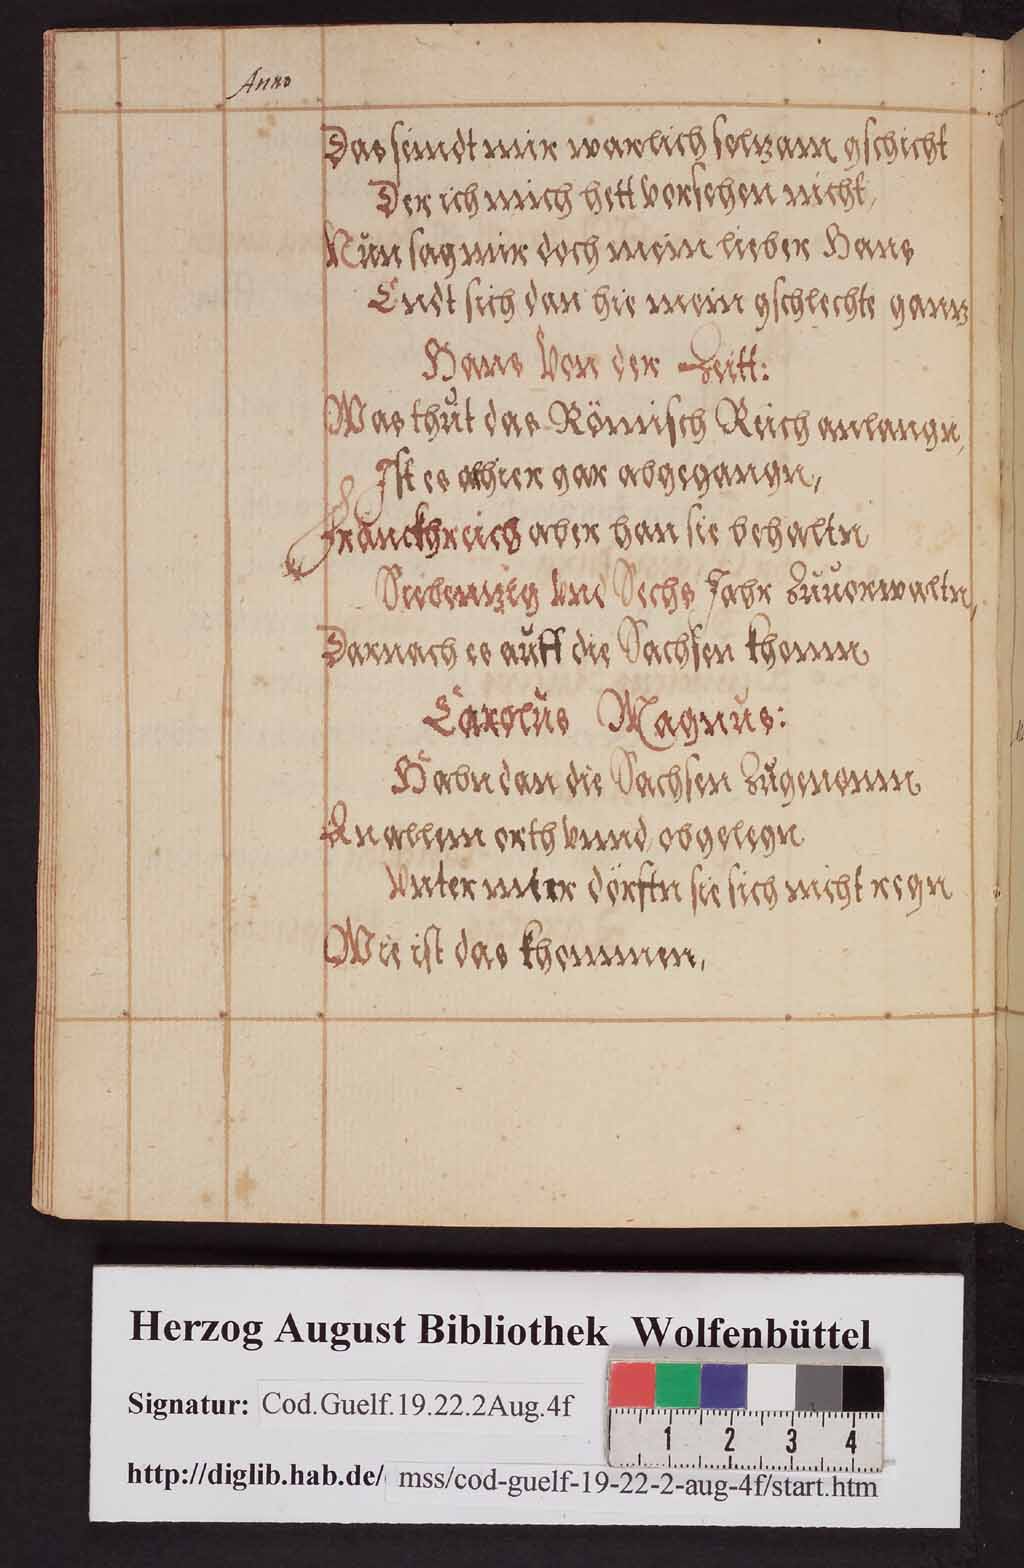 Anno
Das seindt mir warlich selzam gschicht
Der ich mich hett vorsehen nicht,
Nůn sag mir doch mein lieber Hans
Endt sich dan hie mein gschlechte gantz
Hans Von der Zeitt:
Was thůt das Römisch Reich anlangn,
Ist es alhier gar abgegangn,
Franckhreich aber han sie behaltn
Siebentzig Vnd Sechs Jahr Zůuorwaltn,
Darnach es aůff die Sachsen khomn
Carolůs Magnůs:
Habn dan die Sachsen Zůgenomn
An allem orth Vnnd obgelegn
Vnter mir dörftn sie sich nicht regn
Wie ist das khommen,
Herzog August Bibliothek Wolfenbüttel
Signatur: Cod.Guelf.19.22.2Aug.4f
1 2 3 4
http://diglib.hab.de/ mss/cod-guelf-19-22-2-aug-4f/start.htm